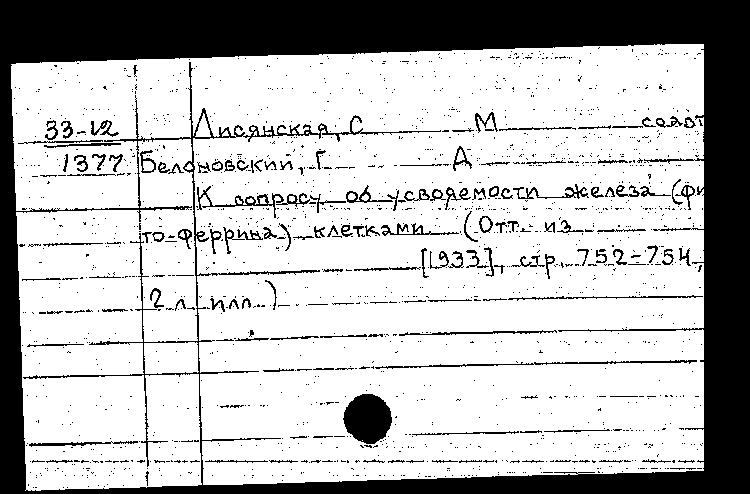 33-12 Лисянская, С М соавт
1377 Белоновский, Г Д
К вопросу об усвояемости железа (фи
то-феррина) клетками (Отт. из
[1933], стр. 752-754,
2 л илл.)